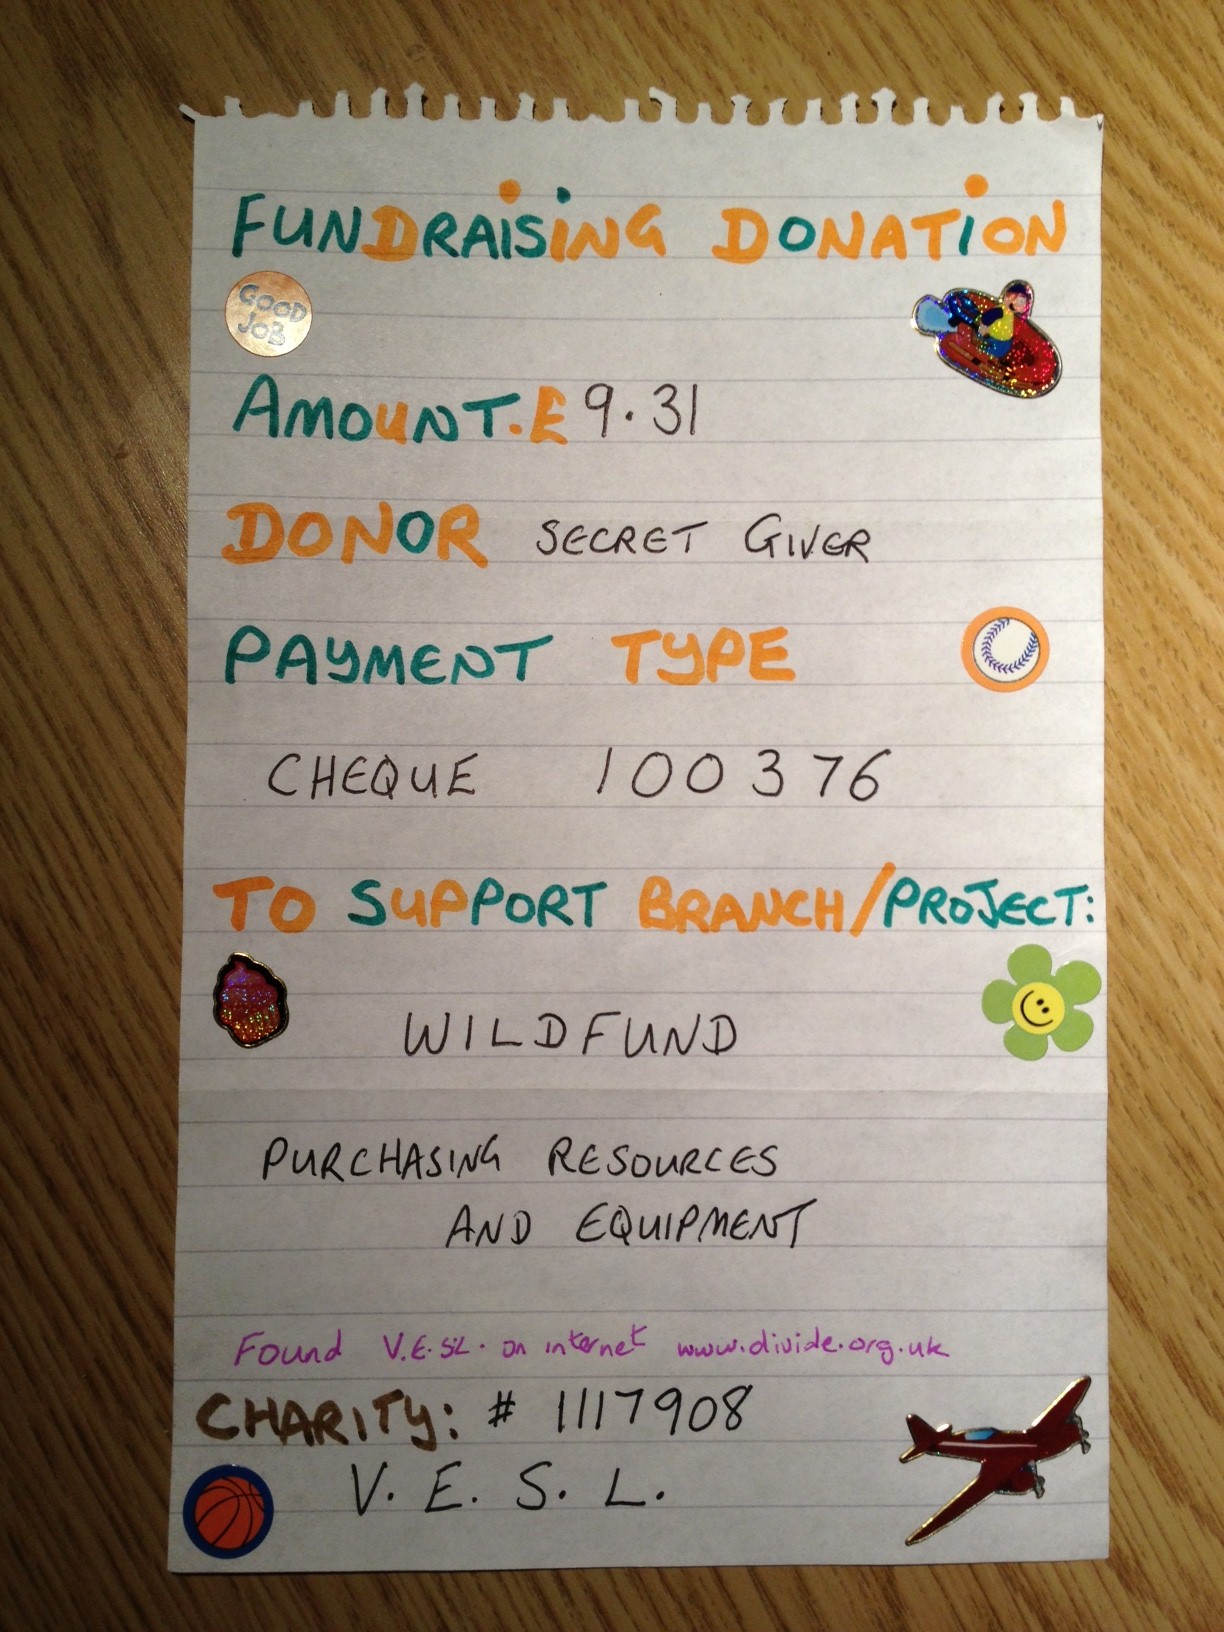 FUNDRAISING DONATION
GOOD
JOB
AMOUNT.£ 9.31
DONOR SECRET GIVER
PAYMENT TYPE
CHEQUE 100376
TO SUPPORT BRANCH/PROJECT:
WILDFUND
PURCHASING RESOURCES
AND EQUIPMENT
Found V.E.S.L. on internet www.divide.org.uk
CHARITY: # 1117908
V. E. S. L.